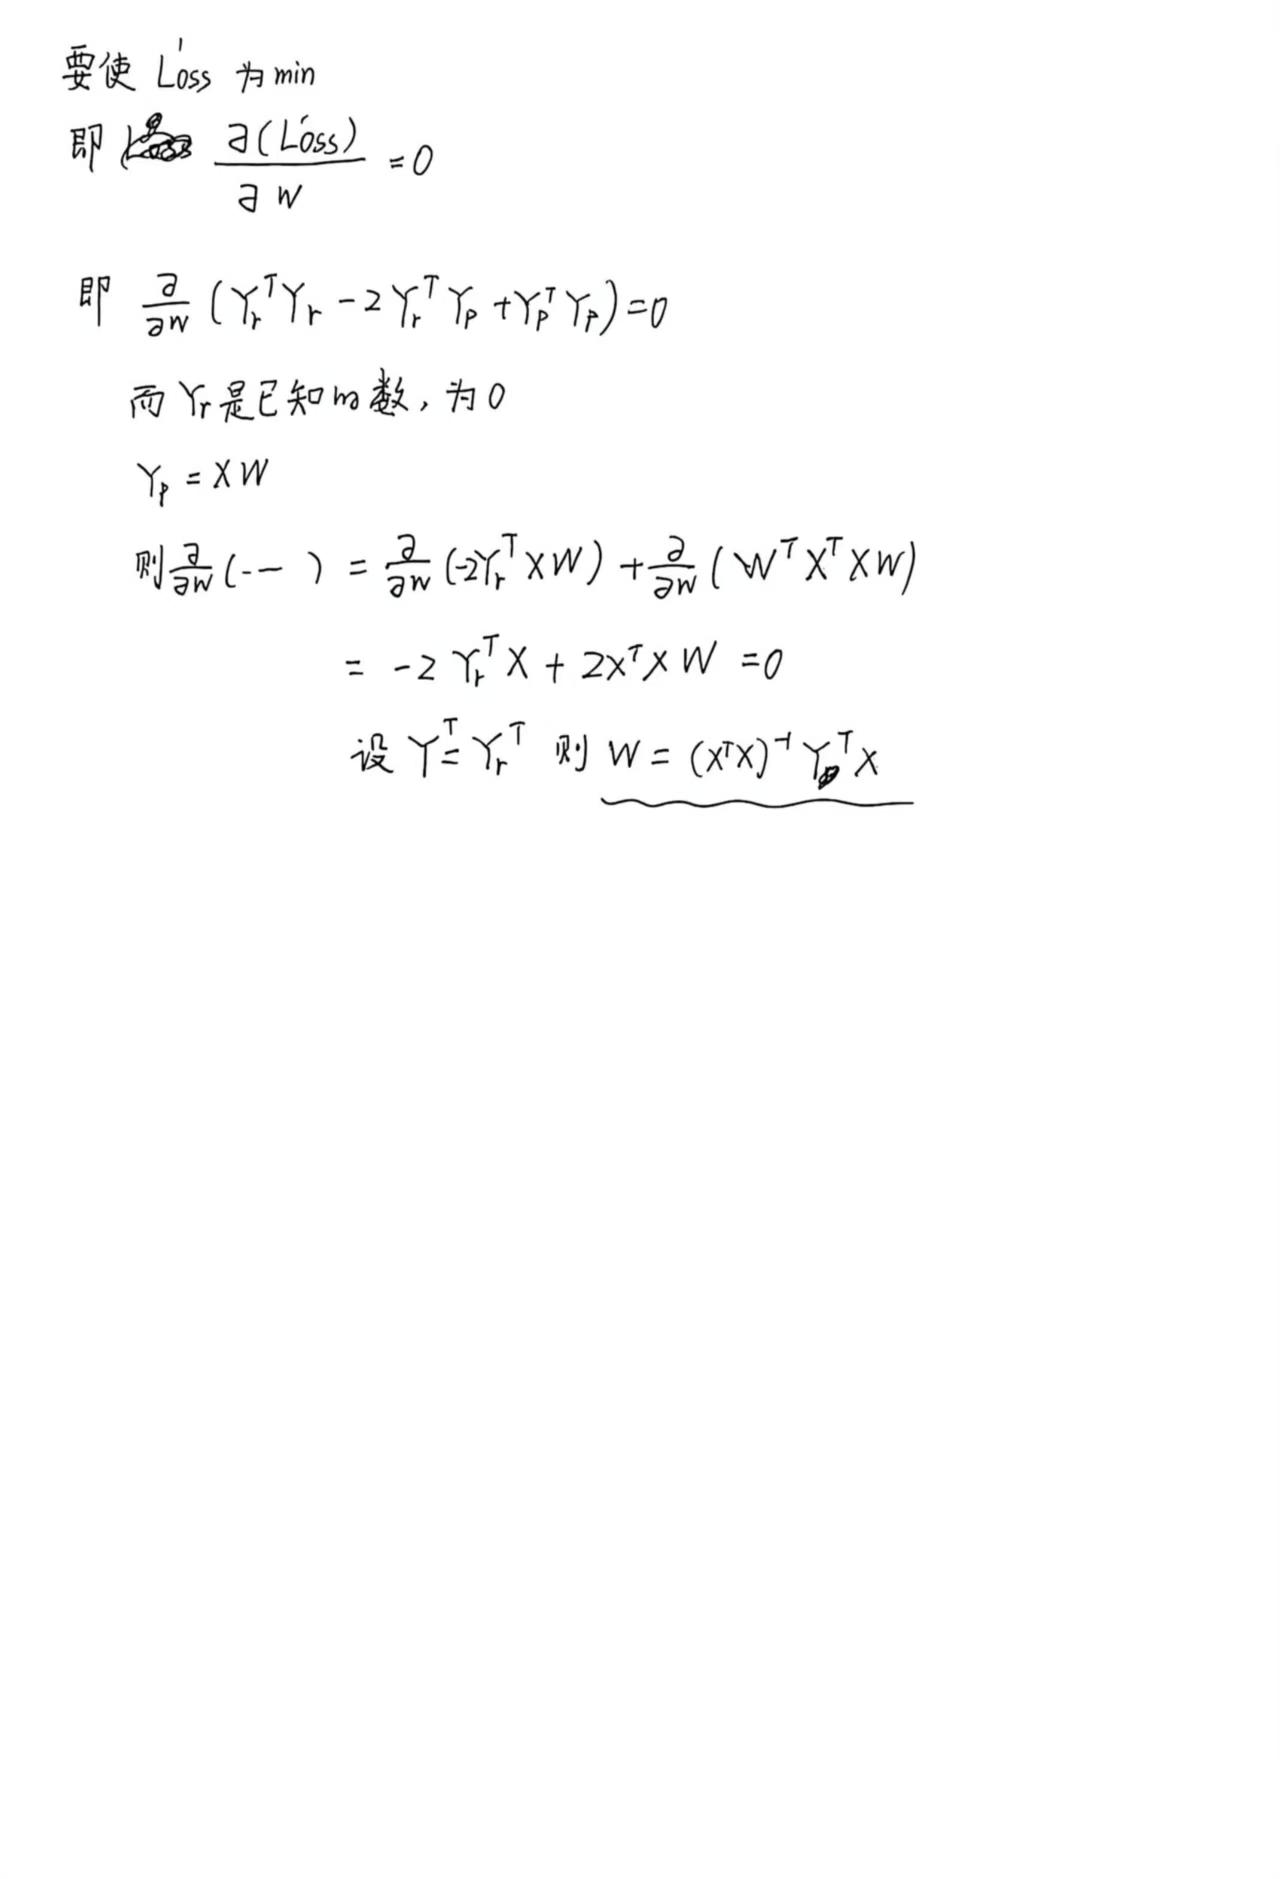 要使 Loss' 为 min
即 ∂(Loss')/∂W = 0
即 ∂/∂W (Yr^T Yr - 2Yr^T Yp + Yp^T Yp) = 0
而 Yr 是已知的数, 为 0
Yp = XW
则 ∂/∂W (-- ) = ∂/∂W (-2Yr^T XW) + ∂/∂W (W^T X^T XW)
= -2 Yr^T X + 2X^T X W = 0
设 Y^T = Yr^T 则 W = (X^T X)^-1 Y^T X